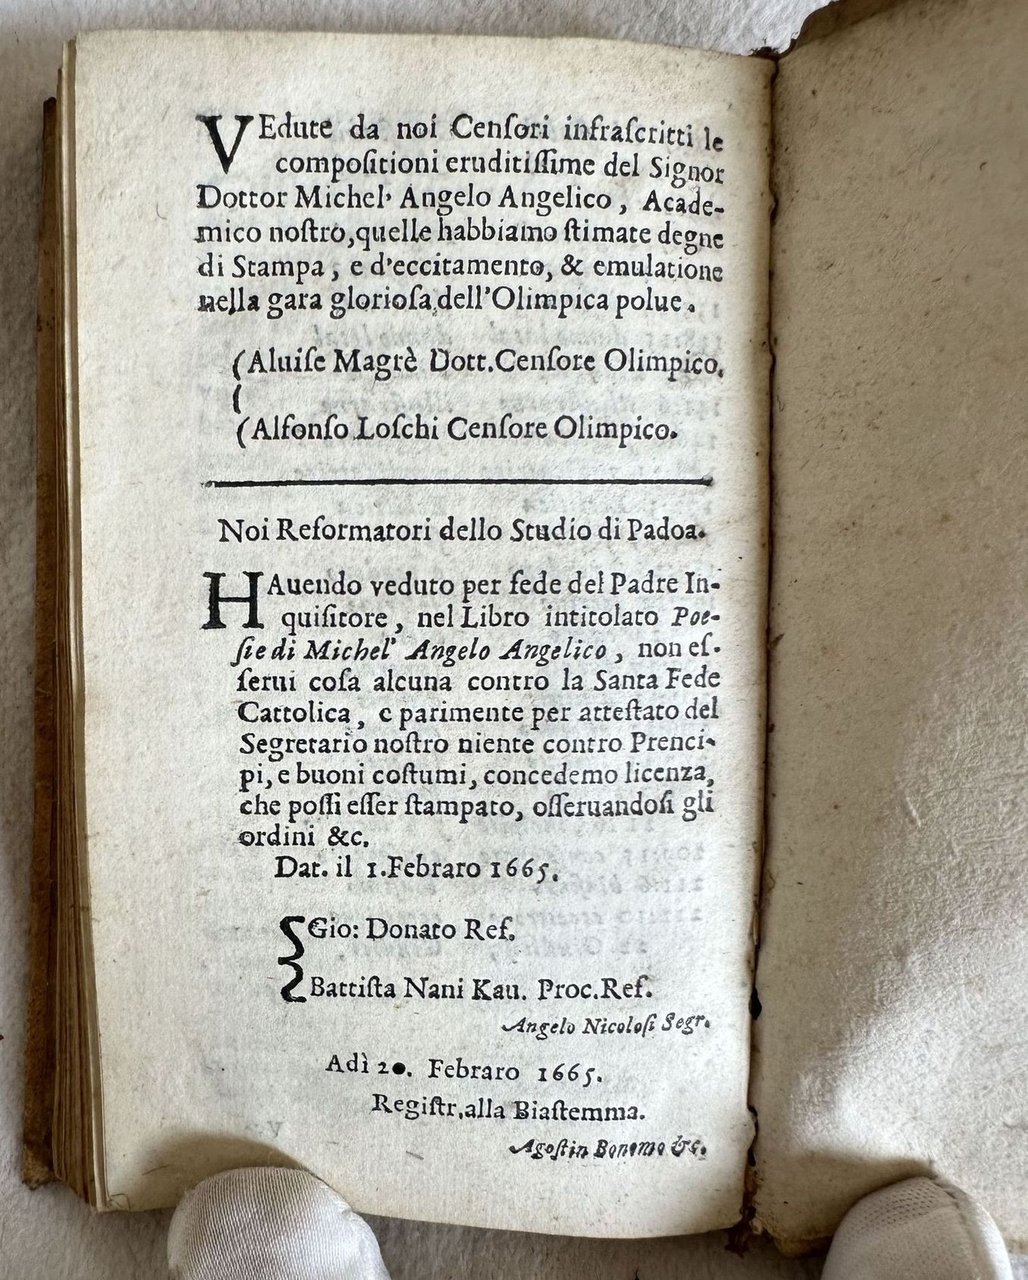 VEdute da noi Cenſori infraſcritti le
compoſitioni eruditiſſime del Signor
Dottor Michel' Angelo Angelico, Acade-
mico noſtro, quelle habbiamo ſtimate degne
di Stampa, e d'eccitamento, & emulatione
nella gara glorioſa dell'Olimpica polue.
(Aluiſe Magrè Dott. Cenſore Olimpico.
(
(Alfonſo Loſchi Cenſore Olimpico.
Noi Reformatori dello Studio di Padoa.
HAuendo veduto per fede del Padre In-
quiſitore, nel Libro intitolato Poe-
ſie di Michel' Angelo Angelico, non eſ-
ſerui coſa alcuna contro la Santa Fede
Cattolica, e parimente per atteſtato del
Segretario noſtro niente contro Prenci-
pi, e buoni coſtumi, concedemo licenza,
che poſſi eſſer ſtampato, oſſeruandoſi gli
ordini &c.
Dat. il 1. Febraro 1665.
Gio: Donato Ref.
Battiſta Nani Kau. Proc. Ref.
Angelo Nicoloſi Segr.
Adì 20. Febraro 1665.
Regiſtr. alla Biaſtemma.
Agoſtin Bonomo &c.